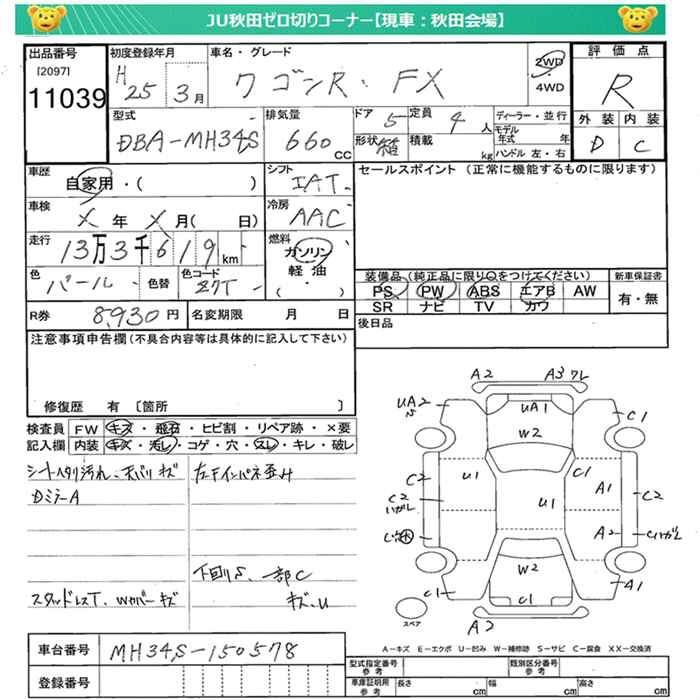 JU秋田ゼロ切りコーナー【現車：秋田会場】
出品番号
[2097]
11039
初度登録年月
H 25 3月
車名・グレード
ワゴンR・FX
2WD
・
4WD
評価点
R
外装 内装
D C
型式
DBA-MH34S
排気量
660 CC
ドア 5
定員 4 人
形状 箱
積載 kg
ディーラー・並行
モデル年式 年
ハンドル 左・右
車歴
自家用・( )
シフト
IAT
車検
X 年 X 月( 日)
冷房
AAC
走行
13万3千619km
燃料
ガソリン
軽油
・
( )
色
パール
色替
色コード
Z7T
R券 8,930円
名変期限 月 日
セールスポイント (正常に機能するものに限ります)
装備品 (純正品に限り○をつけてください)
PS PW ABS エアB AW
SR ナビ TV カワ
新車保証書
有・無
後日品
注意事項申告欄 (不具合内容等は具体的に記入して下さい)
修復歴 有 〔箇所 〕
検査員記入欄
FW キズ・飛石・ヒビ割・リペア跡・×要
内装 キズ・汚レ・コゲ・穴・スレ・キレ・破レ
シートヘタリ汚れ、天バリキズ
DミラーA
左Fインパネ歪み
下回りS、一部C
キズ、U
スタッドレスT、Wカバーキズ
車台番号 MH34S-150578
登録番号
A2 A3ワレ
UA2
UA1
C1
W2
C2
U1
C1
A1
C2
C2
U1
A2
W2
C1
C1
A1
A2
スペア
A－キズ E－エクボ U－凹み W－補修跡 S－サビ C－腐食 XX－交換済
型式指定番号 参考
類別区分番号 参考
車庫証明用 参考
長さ cm
幅 cm
高さ cm